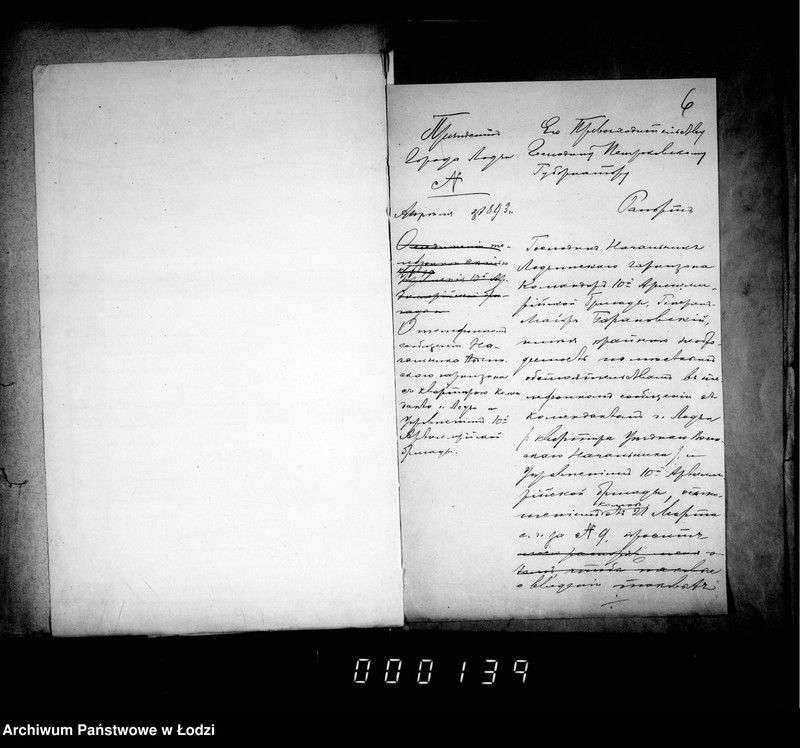 6
Президентъ
Города Лодзи
№
Апрѣля 1893 г.
О телефонномъ
сообщеніи На-
чальника Лодзин-
скаго гарнизона
съ квартирою Комен-
данта г. Лодзи и
Управленіемъ 10й
Артиллерійской
бригады.
Его Превосходительству
Господину Петроковскому
Губернатору
Рапортъ
Господинъ Начальникъ
Лодзинскаго гарнизона
Командиръ 10й Артилле-
рійской бригады, Генералъ-
Маіоръ Барановскій,
имѣя крайнюю необхо-
димость по
обстоятельствамъ въ те-
лефонномъ сообщеніи съ
комендантомъ г. Лодзи
(: квартира Уѣзднаго Воин-
скаго Начальника :) и
Управленіемъ 10й Артилле-
рійской бригады, отно-
шеніемъ 21 Марта
с. г. за № 9, проситъ
о введеніи
000139
Archiwum Państwowe w Łodzi